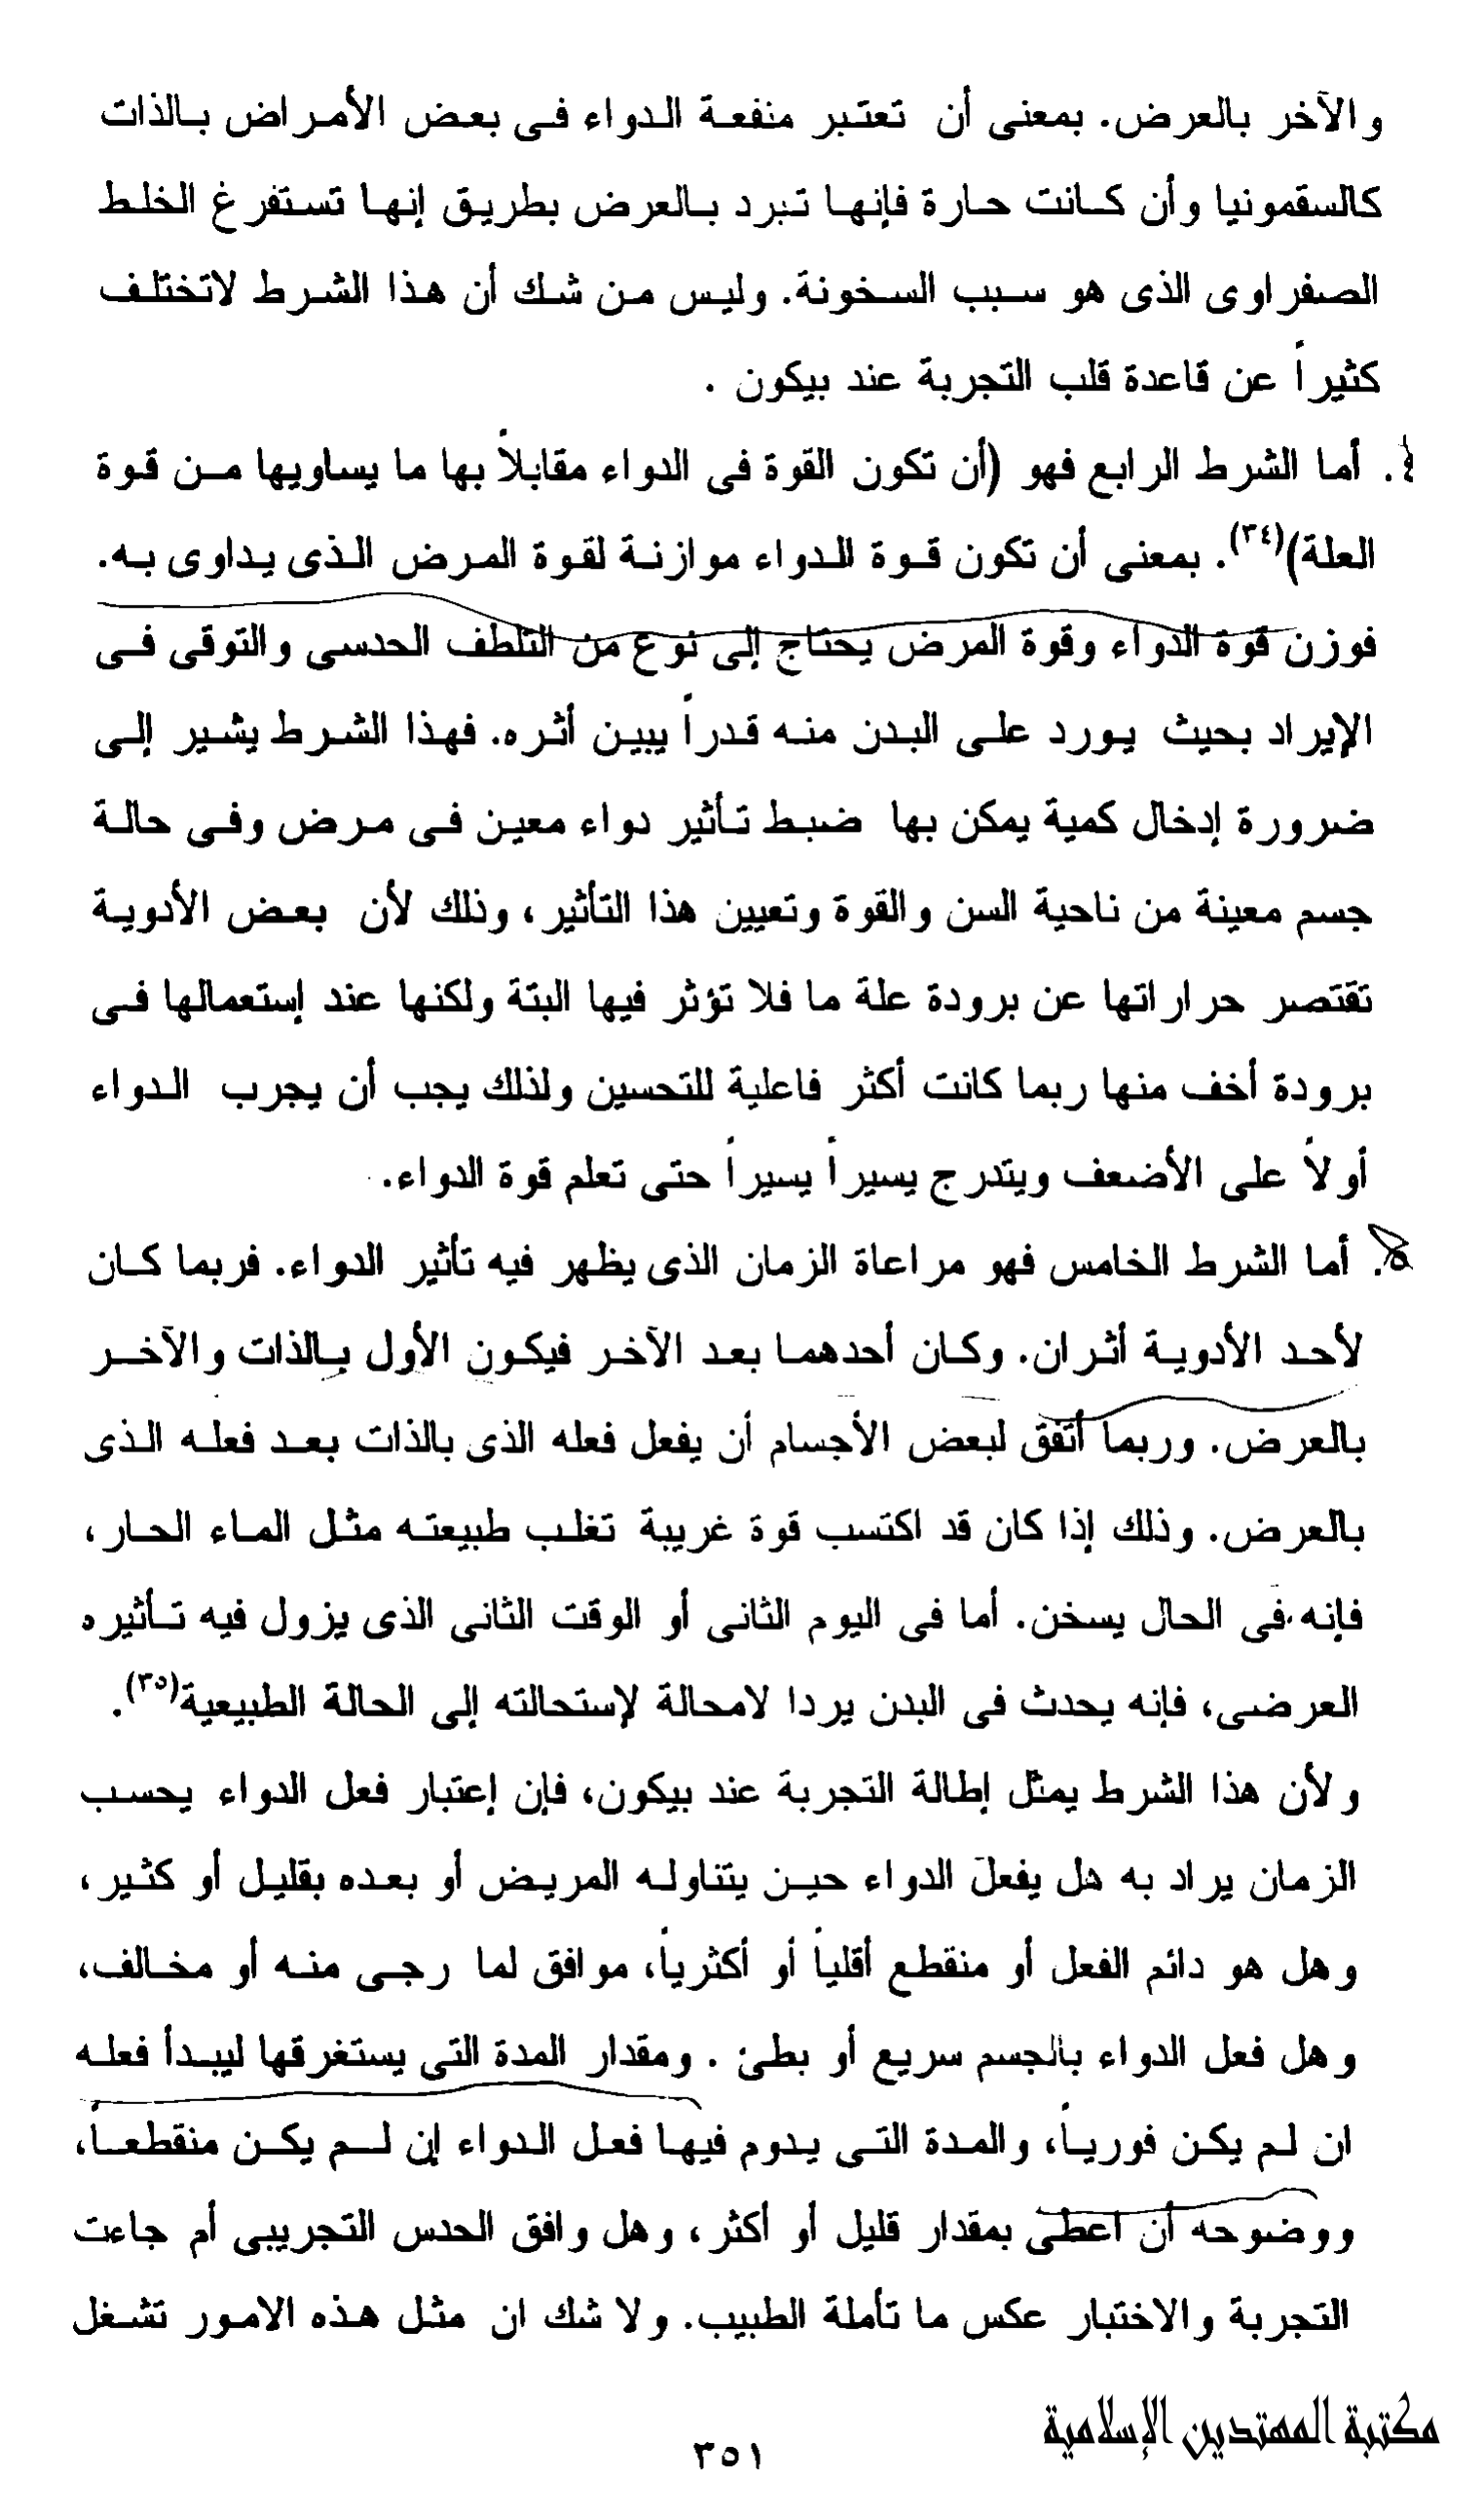 والآخر بالعرض. بمعنى أن تعتبر منفعة الدواء فى بعض الأمراض بالذات
كالسقمونيا وأن كانت حارة فإنها تبرد بالعرض بطريق إنها تستفرغ الخلط
الصفراوى الذى هو سبب السخونة. وليس من شك أن هذا الشرط لاتختلف
كثيراً عن قاعدة قلب التجربة عند بيكون .
٤. أما الشرط الرابع فهو (أن تكون القوة فى الدواء مقابلاً بها ما يساويها من قوة
العلة)(٣٤). بمعنى أن تكون قوة للدواء موازنة لقوة المرض الذى يداوى به.
فوزن قوة الدواء وقوة المرض يحتاج إلى نوع من التلطف الحدسى والتوقى فى
الإيراد بحيث يورد على البدن منه قدراً يبين أثره. فهذا الشرط يشير إلى
ضرورة إدخال كمية يمكن بها ضبط تأثير دواء معين فى مرض وفى حالة
جسم معينة من ناحية السن والقوة وتعيين هذا التأثير، وذلك لأن بعض الأدوية
تقتصر حراراتها عن برودة علة ما فلا تؤثر فيها البتة ولكنها عند إستعمالها فى
برودة أخف منها ربما كانت أكثر فاعلية للتحسين ولذلك يجب أن يجرب الدواء
أولاً على الأضعف ويتدرج يسيراً يسيراً حتى تعلم قوة الدواء.
٥. أما الشرط الخامس فهو مراعاة الزمان الذى يظهر فيه تأثير الدواء. فربما كان
لأحد الأدوية أثران. وكان أحدهما بعد الآخر فيكون الأول بالذات والآخر
بالعرض. وربما أتفق لبعض الأجسام أن يفعل فعله الذى بالذات بعد فعله الذى
بالعرض. وذلك إذا كان قد اكتسب قوة غريبة تغلب طبيعته مثل الماء الحار،
فإنه فى الحال يسخن. أما فى اليوم الثانى أو الوقت الثانى الذى يزول فيه تأثيره
العرضى، فإنه يحدث فى البدن يردا لامحالة لإستحالته إلى الحالة الطبيعية(٣٥).
ولأن هذا الشرط يمثل إطالة التجربة عند بيكون، فإن إعتبار فعل الدواء يحسب
الزمان يراد به هل يفعل الدواء حين يتناوله المريض أو بعده بقليل أو كثير،
وهل هو دائم الفعل أو منقطع أقلياً أو أكثرياً، موافق لما رجى منه أو مخالف،
وهل فعل الدواء بالجسم سريع أو بطئ . ومقدار المدة التى يستغرقها ليبدأ فعله
ان لم يكن فورياً، والمدة التى يدوم فيها فعل الدواء إن لم يكن منقطعاً،
ووضوحه أن اعطى بمقدار قليل أو أكثر، وهل وافق الحدس التجريبى أم جاءت
التجربة والاختبار عكس ما تأملة الطبيب. ولا شك ان مثل هذه الامور تشغل
مكتبة المهتدين الإسلامية
٣٥١